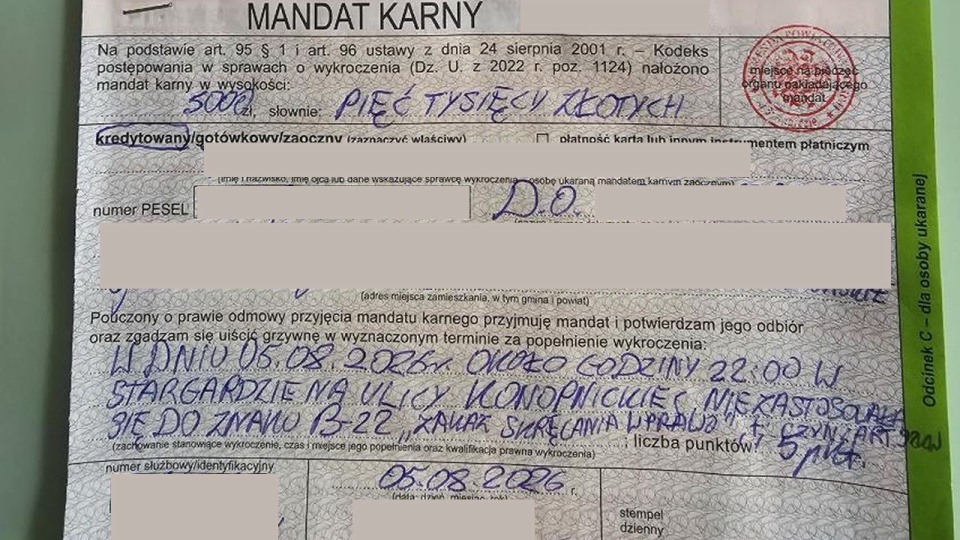 MANDAT KARNY
Na podstawie art. 95 § 1 i art. 96 ustawy z dnia 24 sierpnia 2001 r. – Kodeks
postępowania w sprawach o wykroczenia (Dz. U. z 2022 r. poz. 1124) nałożono
mandat karny w wysokości:
500 zł, słownie: PIĘĆ TYSIĘCY ZŁOTYCH
miejsce na pieczęć
organu nakładającego
mandat
kredytowany/gotówkowy/zaoczny (zaznaczyć właściwy)
płatność kartą lub innym instrumentem płatniczym
(imię i nazwisko, imię ojca lub dane wskazujące sprawcę wykroczenia – osobę ukaraną mandatem karnym zaocznym)
numer PESEL
D.O.
(adres miejsca zamieszkania, w tym gmina i powiat)
Pouczony o prawie odmowy przyjęcia mandatu karnego przyjmuję mandat i potwierdzam jego odbiór
oraz zgadzam się uiścić grzywnę w wyznaczonym terminie za popełnienie wykroczenia:
W DNIU 05.08.2026r. OKOŁO GODZINY 22:00 W
STARGARDZIE NA ULICY KONOPNICKIEJ NIEZASTOSOWAŁ
SIĘ DO ZNAKU B-22 „ZAKAZ SKRĘCANIA W PRAWO" tj. CZYN Z ART.
(zachowanie stanowiące wykroczenie, czas i miejsce jego popełnienia oraz kwalifikacja prawna wykroczenia)
liczba punktów: 5 pkt.
numer służbowy/identyfikacyjny
05.08.2026 r.
(data: dzień, miesiąc, rok)
stempel
dzienny
Odcinek C – dla osoby ukaranej